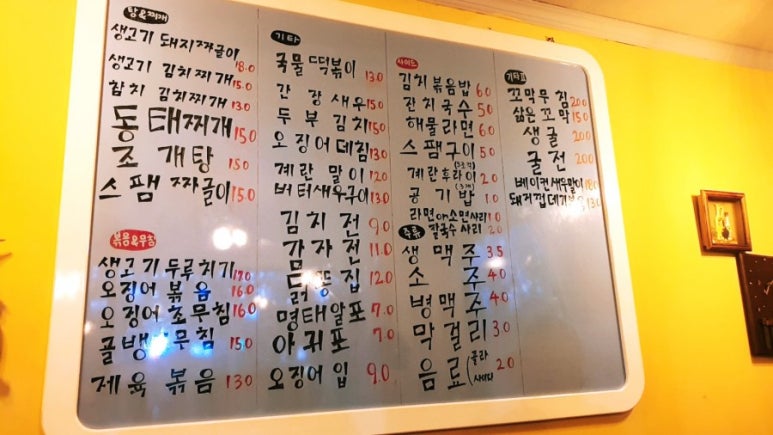 탕&찌개
생고기 돼지짜글이 18.0
생고기 김치찌개 15.0
참치 김치찌개 13.0
동태찌개 15.0
조개탕 15.0
스팸 짜글이 15.0
볶음&무침
생고기 두루치기
오징어 볶음 16.0
오징어 초무침 16.0
골뱅 무침 15.0
제육 볶음 13.0
기타
국물 떡볶이 13.0
간장새우 15.0
두부 김치 15.0
오징어데침 13.0
계란 말이 12.0
버터새우구이 13.0
김치 전 9.0
감자 전 11.0
닭똥집 12.0
명태알포 7.0
아귀포 7.0
오징어 입 9.0
사이드
김치볶음밥 6.0
잔치국수 5.0
해물라면 6.0
스팸구이 5.0
계란후라이 2.0
공기밥 1.0
라면or소면사리 1.0
칼국수 사리 2.0
주류
생맥주 3.5
소주 4.0
병맥주 4.0
막걸리 3.0
음료(콜라 사이다 2.0
꼬막무침 20.0
삶은꼬막 15.0
생굴 20.0
굴전 20.0
베이컨새우말이 18.0
돼지껍데기볶음 13.0